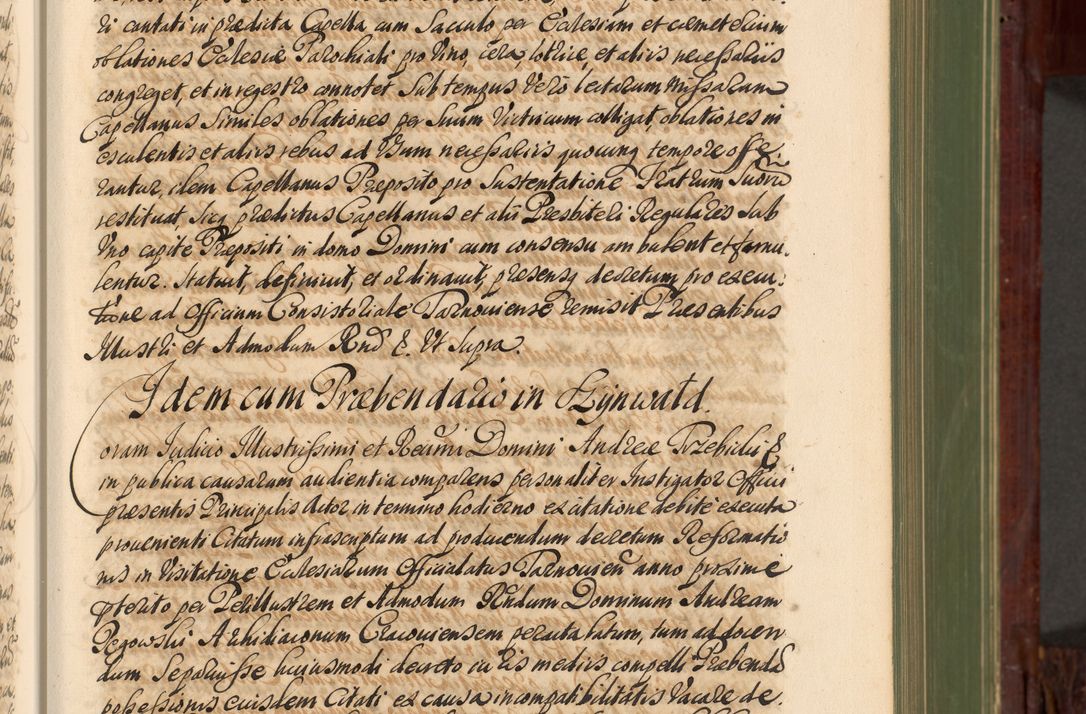 ri cantati in prædicta Capella cum Sacculo per Ecclesiam et cæmeterium
oblationes Ecclesiæ Parochiali pro Vino, cera, lotrice, et aliis necessariis
congreget, et in regestro connotet Sub tempus Verò lectarum Missarum
Capellanus Similes oblationes per Suum Vitricum colligat, oblationes in
esculentis et aliis rebus ad Vsum necessariis quocunq tempore offe
rantur, idem Capellanus Præposito pro Sustentatione Fratrum Suoru
restituat, Sicq prædictus Capellanus et alii Presbiteri Regulares Sub
Vno capite Præpositi in domo Domini cum consensu ambulent et famu
lentur. Statuit, definiuit, et ordinauit, præsensq decretum pro execu:
tione ad Officium Consistoriale Tarnouiense remisit Præsentibus
Illustri et Admodum Rnd &. Vt Supra.
Idem cum Præbendario in Szynwałd.
oram Judicio Illustrissimi et Reumi Domini Andreæ Trzebicki &
in publica causarum audientia comparens personaliter Instigator Officii
præsentis Principalis Actor in termino hodierno ex citatione debitè executa
prouenienti Citatum infrascriptum ad producendum decretum Reformatio
nis in Visitatione Ecclesiarum Officialatus Tarnouien anno proximè
pterito per Perillustrem et Admodum Rndum Dominum Andream
Pegowski Archidiaconum Cracouiensem peracta latum, tum ad docen
dum Se paruisse huiusmodi decreto iuris mediis compelli Præbendæ
possessionis eiusdem Citati ex causa incompatibilitatis Vacare de.